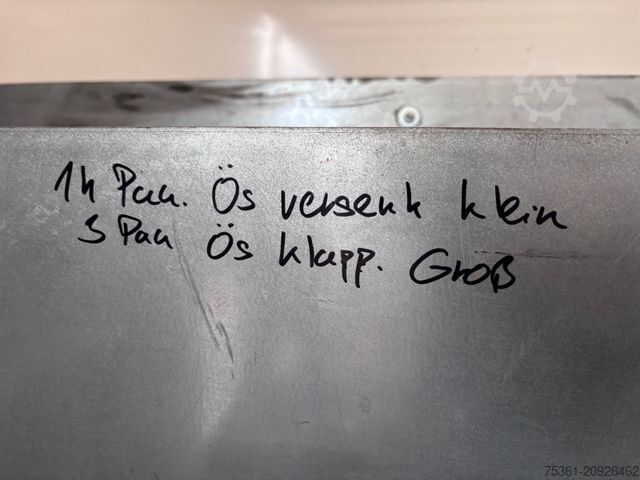 14 Pan. Ös versenk klein
5 Pan Ös klapp. Groß
75361-20926462